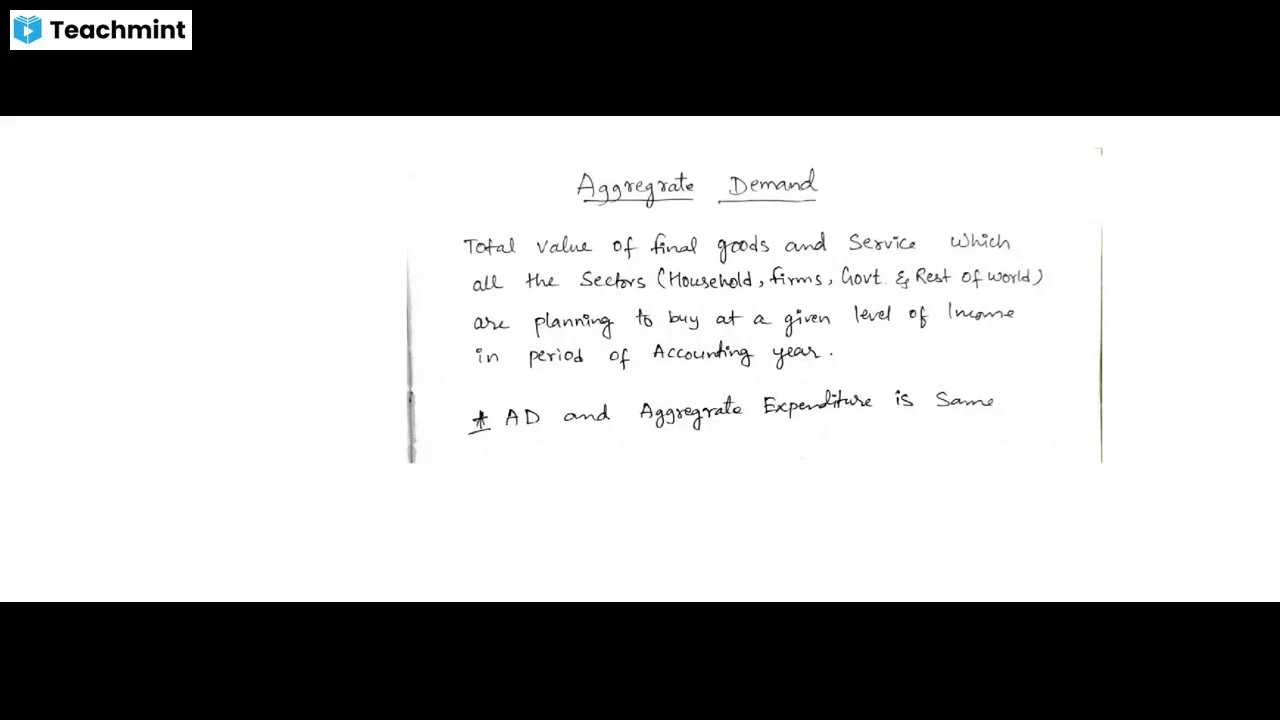 Teachmint
Aggregrate Demand
Total value of final goods and Service which
all the Sectors (Household, firms, Govt. & Rest of world)
are planning to buy at a given level of Income
in period of Accounting year.
* AD and Aggregrate Expenditure is Same